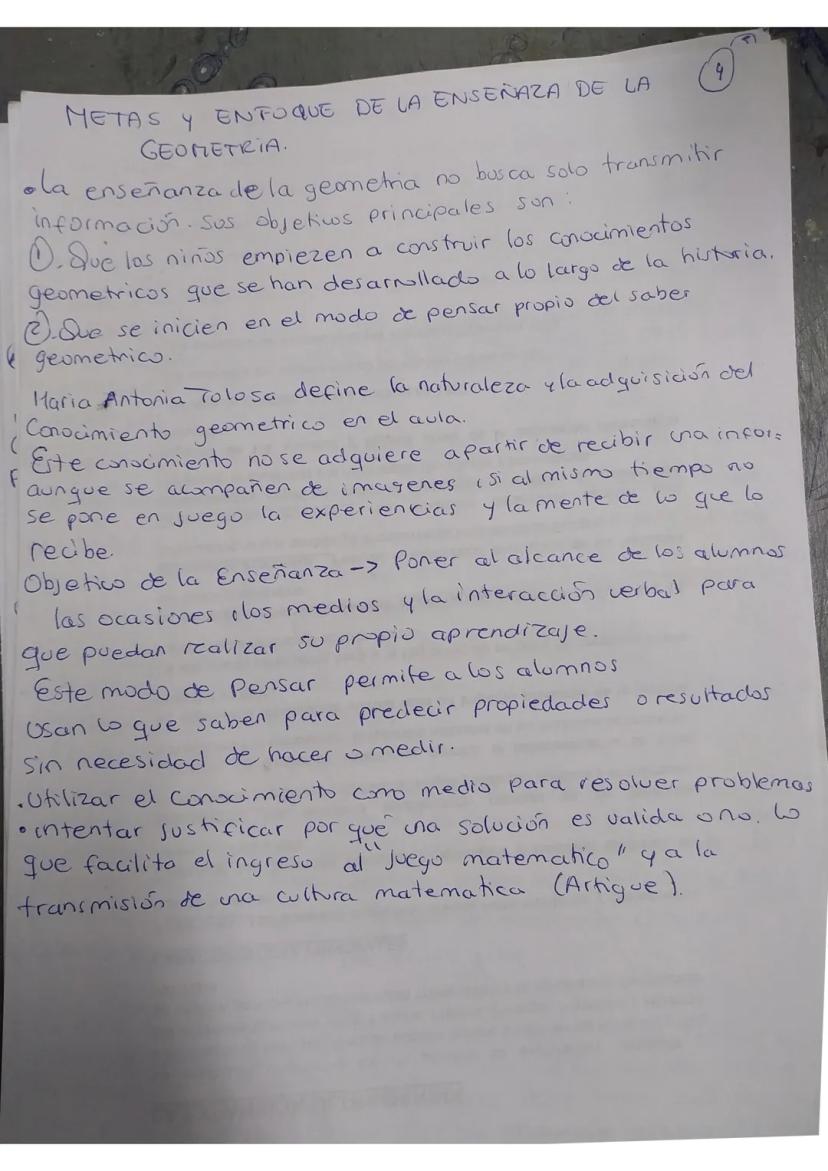 4
METAS Y ENFOQUE DE LA ENSEÑAZA DE LA
GEOMETRIA.
• La enseñanza de la geometria no busca solo transmitir
información. Sus objetivos principales son:
①. Que los niños empiezen a construir los conocimientos
geometricos que se han desarrollado a lo largo de la historia.
②. Que se inicien en el modo de pensar propio del saber
geometrico.
Maria Antonia Tolosa define la naturaleza y la adquisición del
Conocimiento geometrico en el aula.
Este conocimiento no se adquiere apartir de recibir una infor:
aunque se acompañen de imagenes, si al mismo tiempo no
se pone en juego la experiencias y la mente de lo que lo
recibe.
Objetico de la Enseñanza -> Poner al alcance de los alumnos
las ocasiones, los medios y la interacción verbal para
que puedan realizar su propio aprendizaje.
Este modo de Pensar permite a los alumnos
Usan lo que saben para predecir propiedades o resultados
sin necesidad de hacer o medir.
. Utilizar el conocimiento como medio para resolver problemas
• intentar justificar por qué una solución es valida o no. lo
que facilita el ingreso al "juego matematico" y a la
transmisión de una cultura matematica (Artigue).